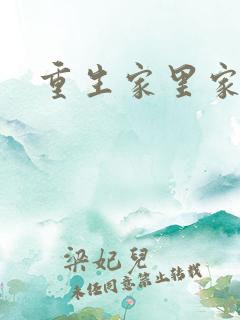 重生家里家
梁妃儿
未经同意禁止转载